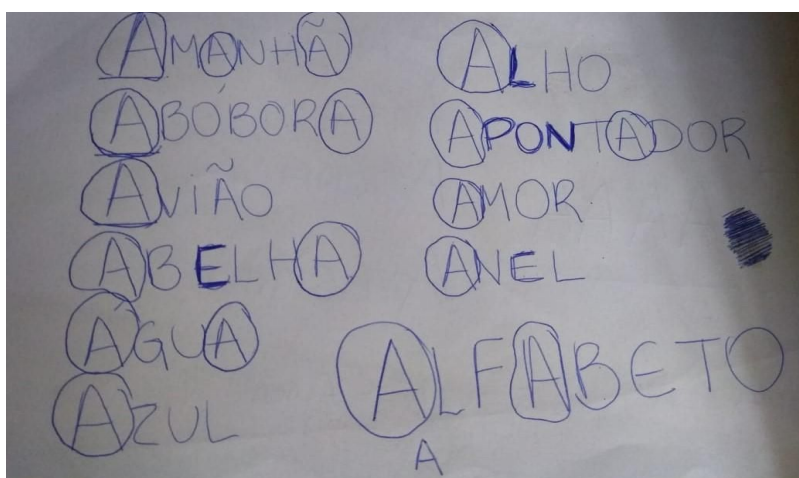 AMANHÃ
ABÓBORA
AVIÃO
ABELHA
ÁGUA
AZUL
ALHO
APONTADOR
AMOR
ANEL
ALFABETO
A